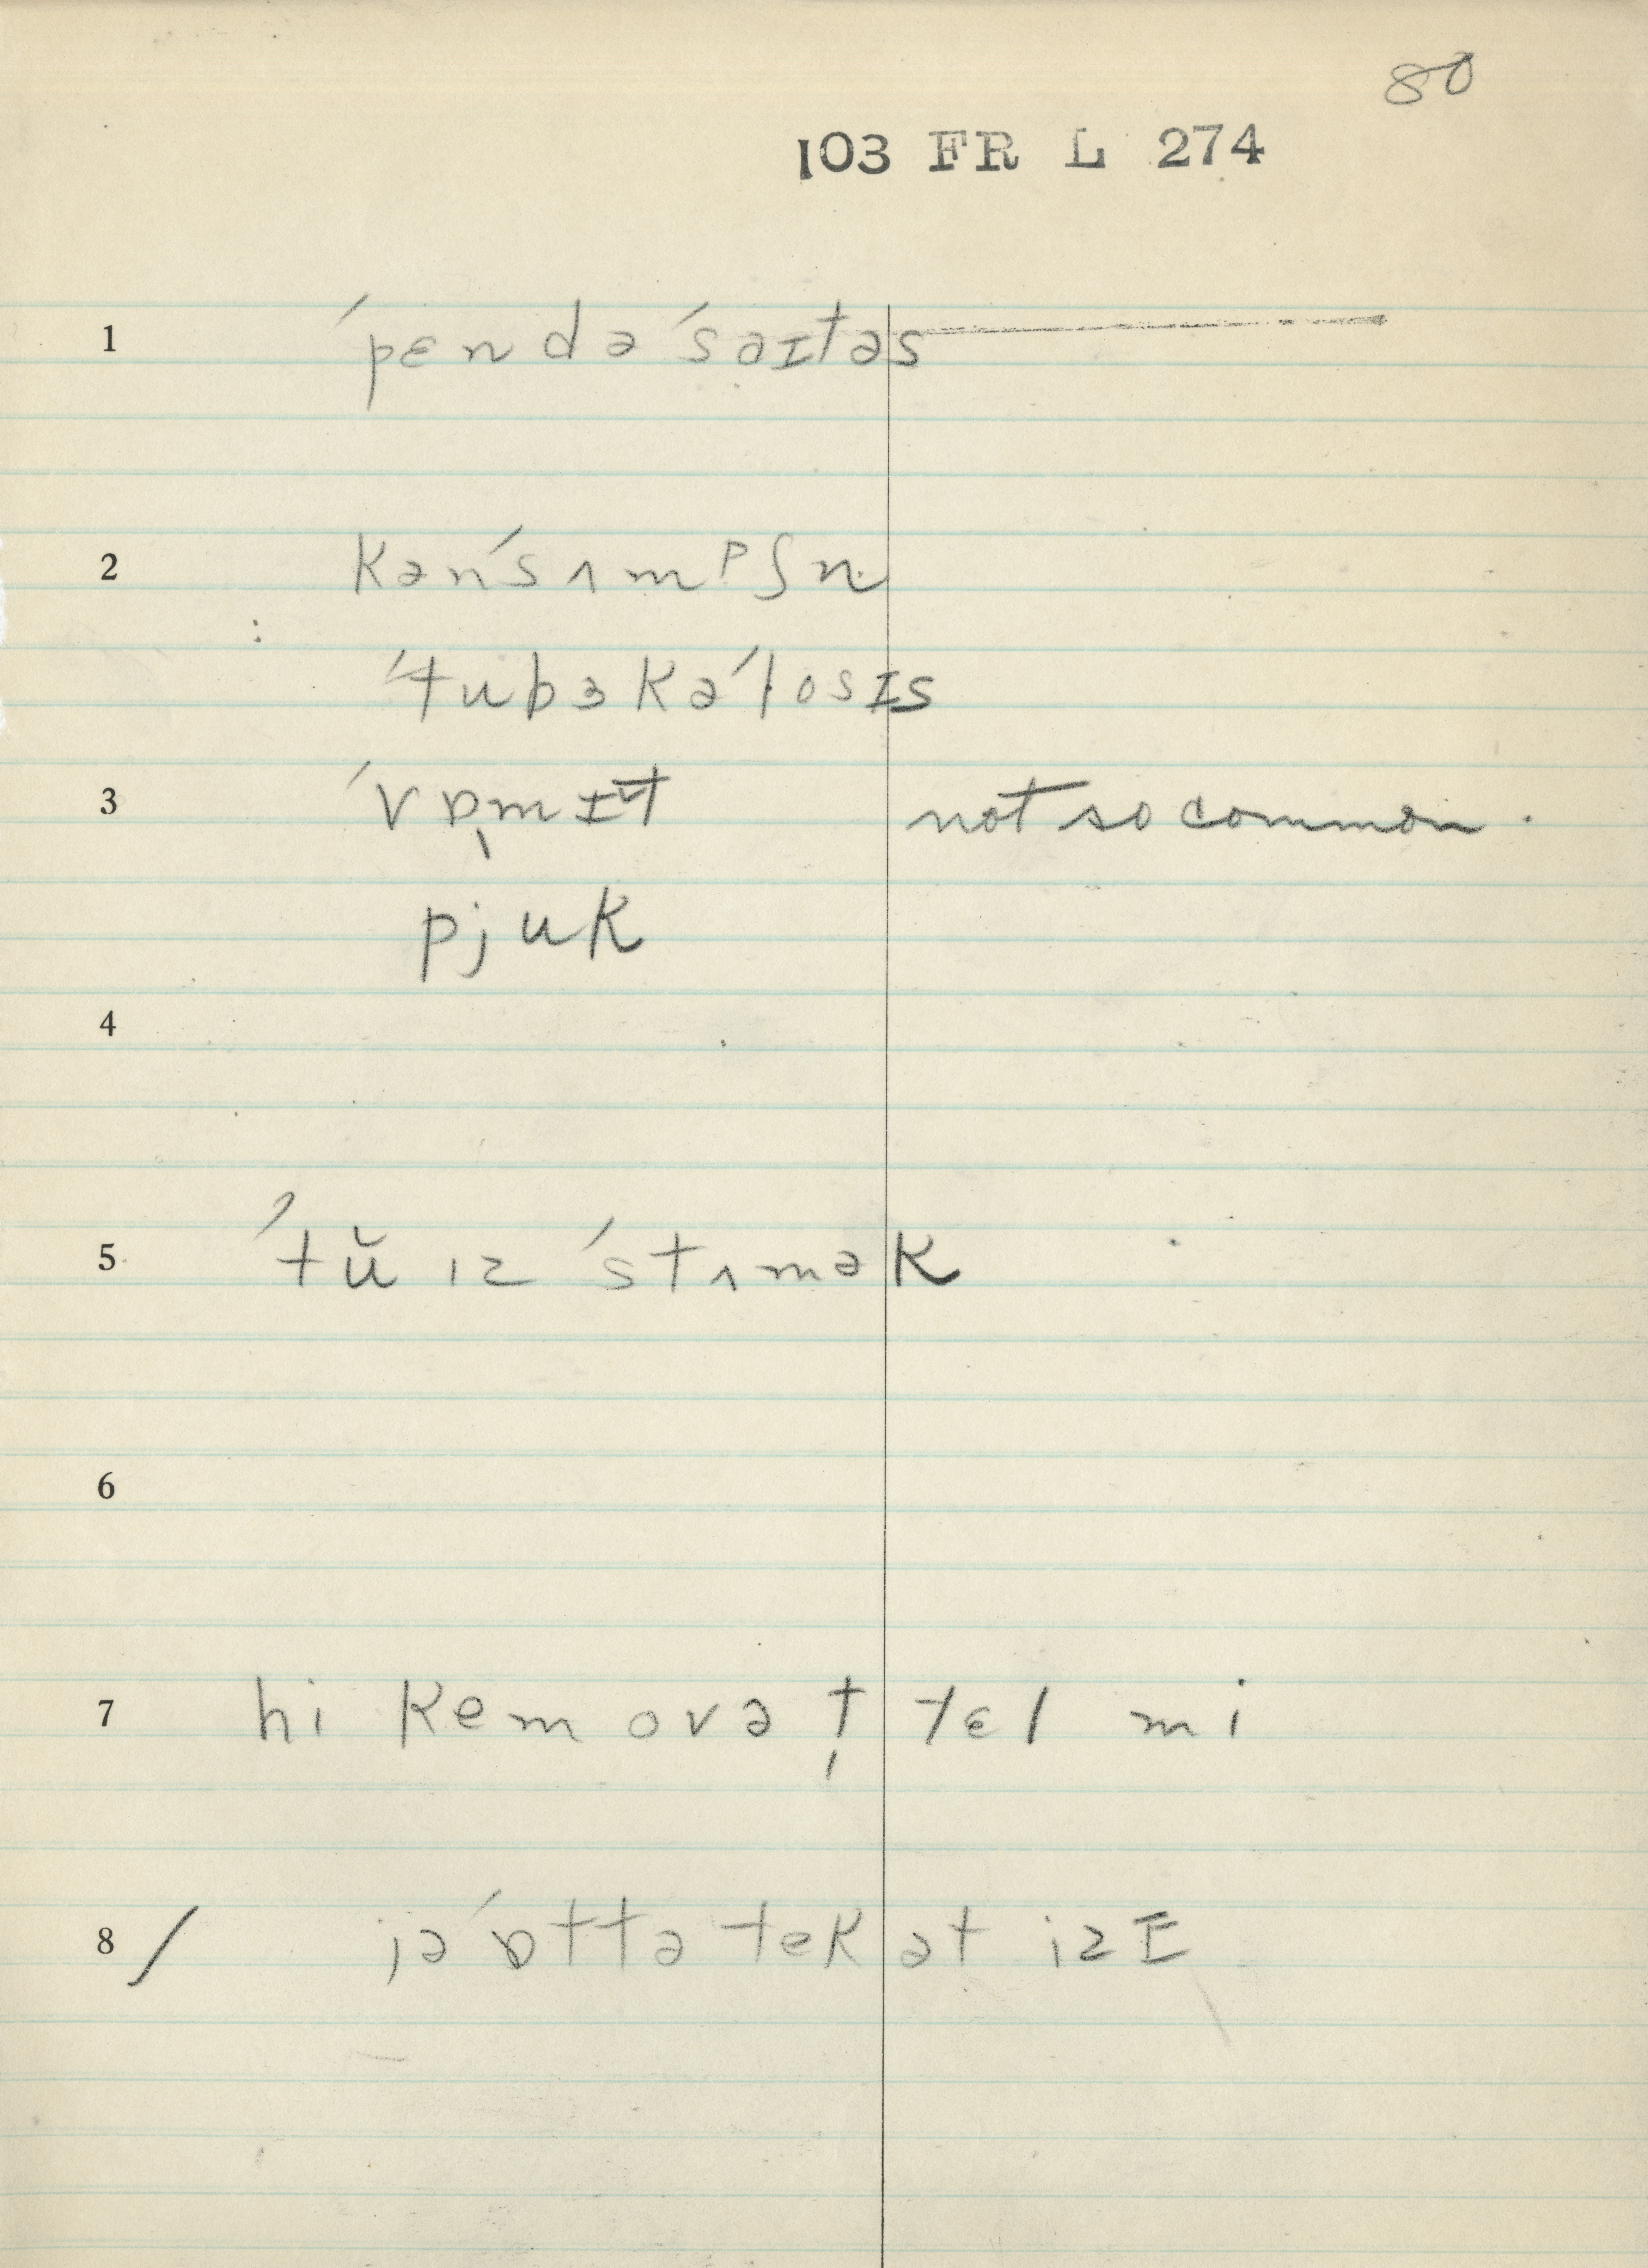 80
103 FR L 274
1 ˈpɛndəˈsaɪtəs
2 kənˈsʌmᵖʃn
ˈtubɜkəˈlosɪs
3 ˈvɒ̩mɪt not so common.
pjuk
4
5 ˈtŭ ɪz ˈstʌmək
6
7 hi kem ovə t̩ tɛl mi
8 / jəˈɒttə tek ət izɪ